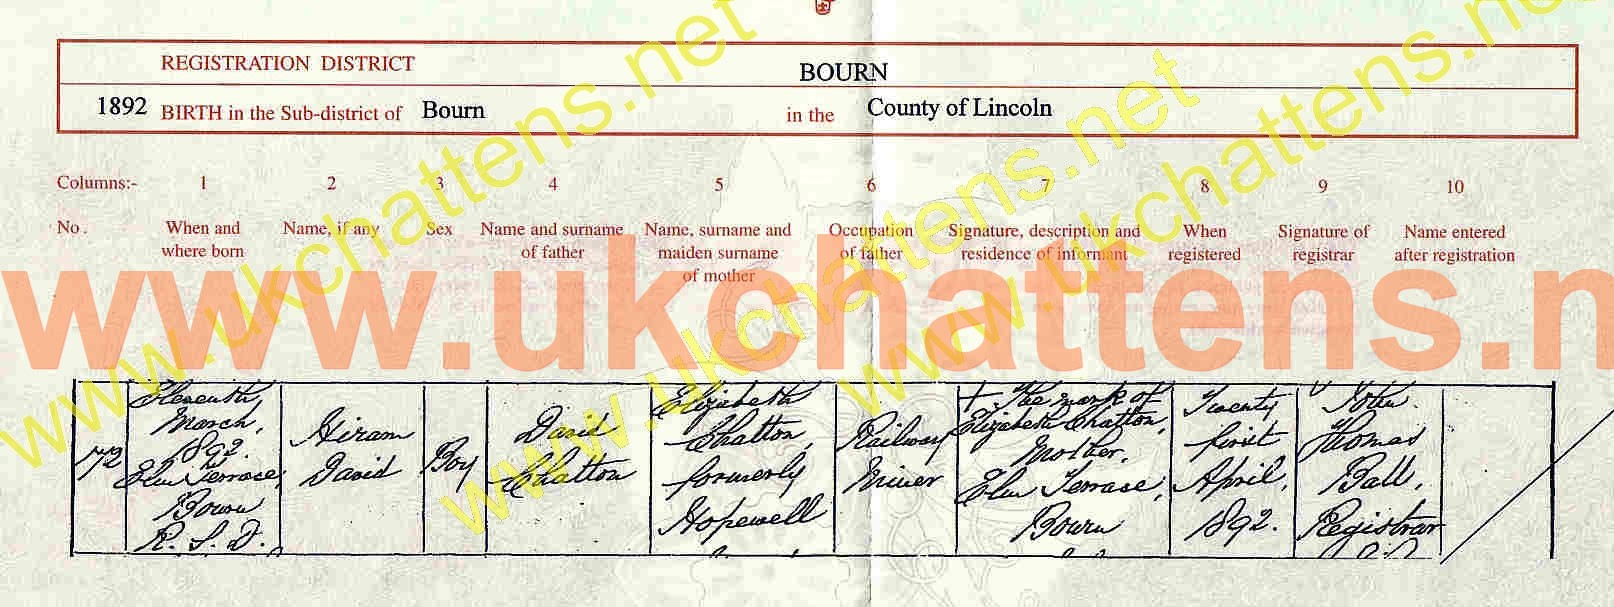 REGISTRATION DISTRICT BOURN
1892 BIRTH in the Sub-district of Bourn in the County of Lincoln
Columns:- 1 2 3 4 5 6 7 8 9 10
No. When and where born
Name, if any
Sex
Name and surname of father
Name, surname and maiden surname of mother
Occupation of father
Signature, description and residence of informant
When registered
Signature of registrar
Name entered after registration
www.ukchattens.n
www.ukchattens.net
www.ukchattens.net
www.ukchattens.ne
72
Eleventh
March,
1892.
Elm Terrace,
Bourn
R. S. D.
Hiram
David
Boy
David
Chatton
Elizabeth
Chatton,
formerly
Hopewell
Railway
Miner
X The mark of
Elizabeth Chatton,
Mother,
Elm Terrace,
Bourn
Twenty
first
April,
1892.
John
Thomas
Ball,
Registrar